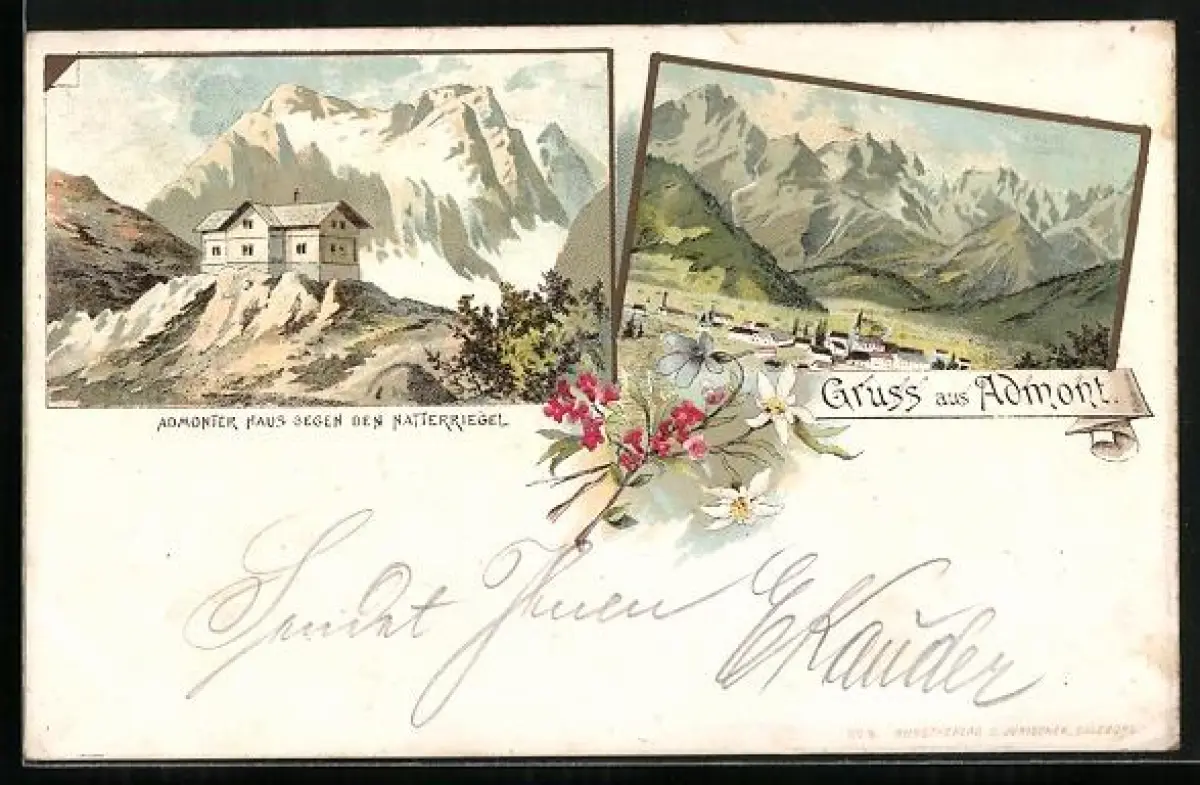 ADMONTER HAUS GEGEN DEN NATTERRIEGEL
Gruss aus Admont.
Sendet Ihnen EKauder
KUNST-VERLAG